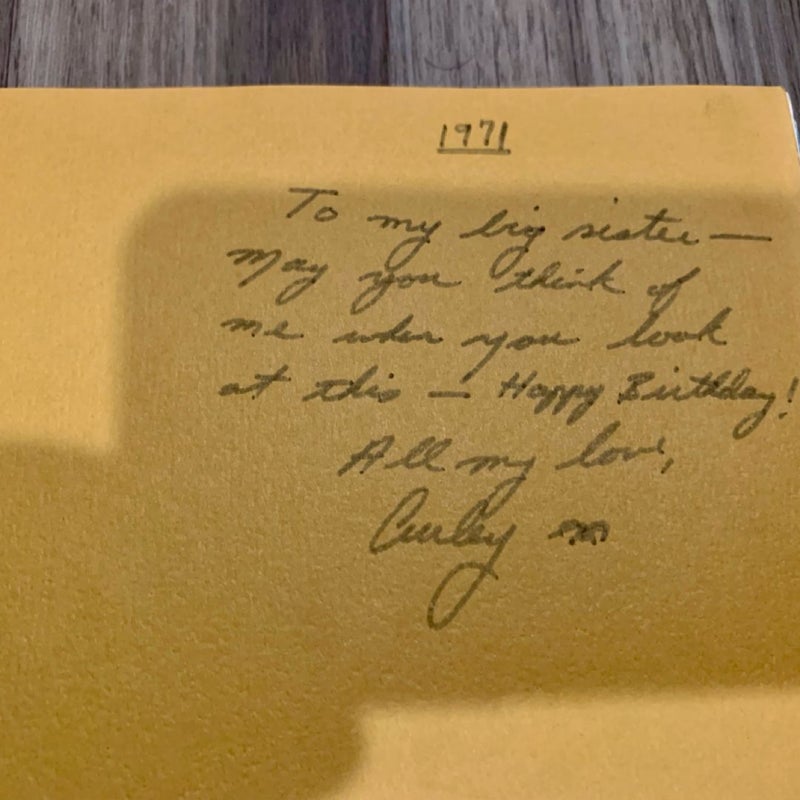 1971
To my big sister —
May you think of
me when you look
at this — Happy Birthday!
All my love,